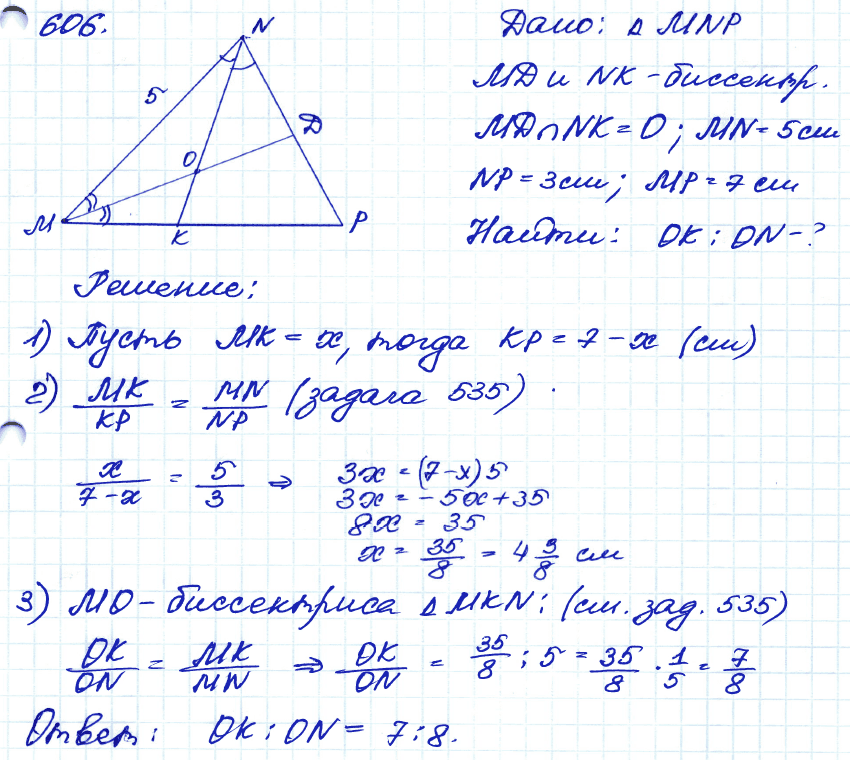 606.
N
5
D
O
M
K
P
Дано: △ MNP
MD и NK - биссектр.
MD∩NK = O ; MN = 5см
NP = 3см ; MP = 7 см
Найти: OK : ON - ?
Решение:
1) Пусть MK = x, тогда KP = 7 - x (см)
2) MK/KP = MN/NP (задача 535)
x/(7-x) = 5/3 ⇒ 3x = (7-x)5
3x = -5x + 35
8x = 35
x = 35/8 = 4 3/8 см
3) MO - биссектриса △ MKN: (см. зад. 535)
OK/ON = MK/MN ⇒ OK/ON = 35/8 : 5 = 35/8 · 1/5 = 7/8
Ответ: OK : ON = 7 : 8.